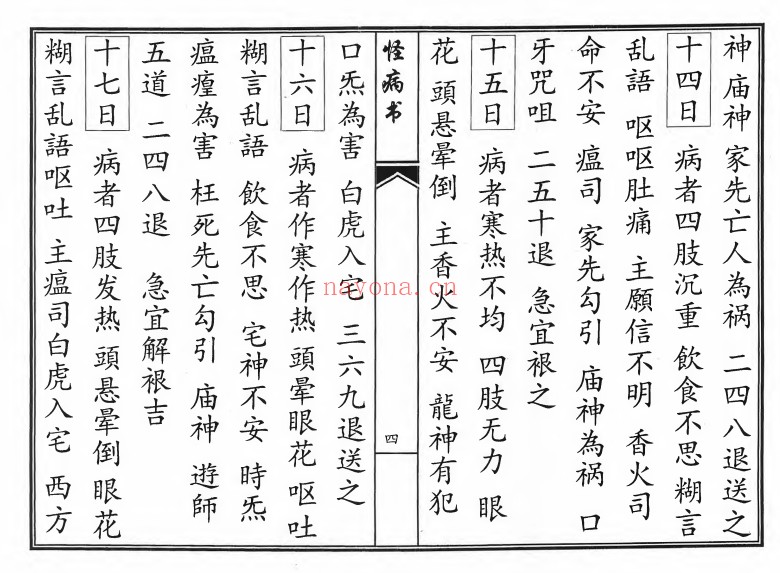 神庙神 家先亡人為祸 二四八退送之
十四日 病者四肢沉重 飲食不思 糊言
乱語 呕呕肚痛 主願信不明 香火司
命不安 瘟司 家先勾引 庙神為祸 口
牙咒咀 二五十退 急宜裉之
十五日 病者寒热不均 四肢无力 眼
花 頭悬晕倒 主香火不安 龍神有犯
怪病书
四
口炁為害 白虎入宅 三六九退送之
十六日 病者作寒作热 頭晕眼花 呕吐
糊言乱語 飲食不思 宅神不安 時炁
瘟瘴為害 枉死先亡勾引 庙神 遊師
五道 二四八退 急宜解裉吉
十七日 病者四肢发热 頭悬晕倒 眼花
糊言乱語呕吐 主瘟司白虎入宅 西方
nayona.cn